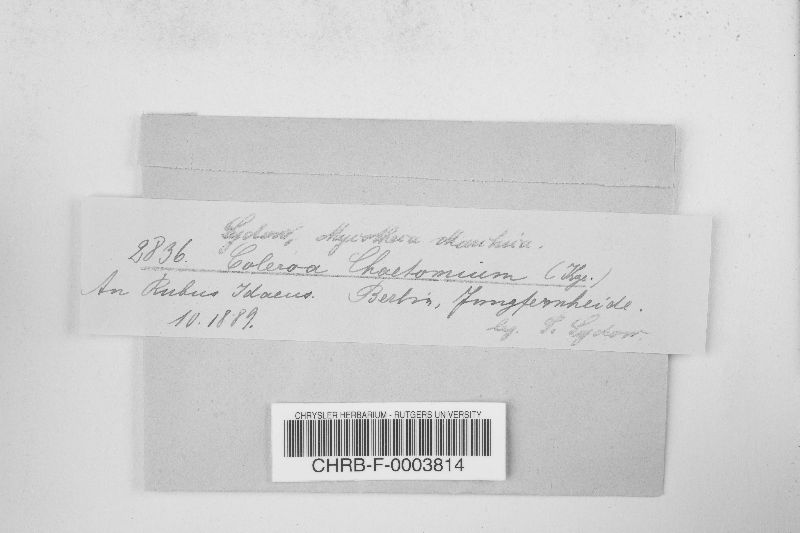 Sydow, Mycotheca Marchica.
2836. Coleroa Chaetomium (Kze.)
An Rubus Idaeus. Berlin, Jungfernheide.
10. 1889. leg. P. Sydow.
CHRYSLER HERBARIUM - RUTGERS UNIVERSITY
CHRB-F-0003814